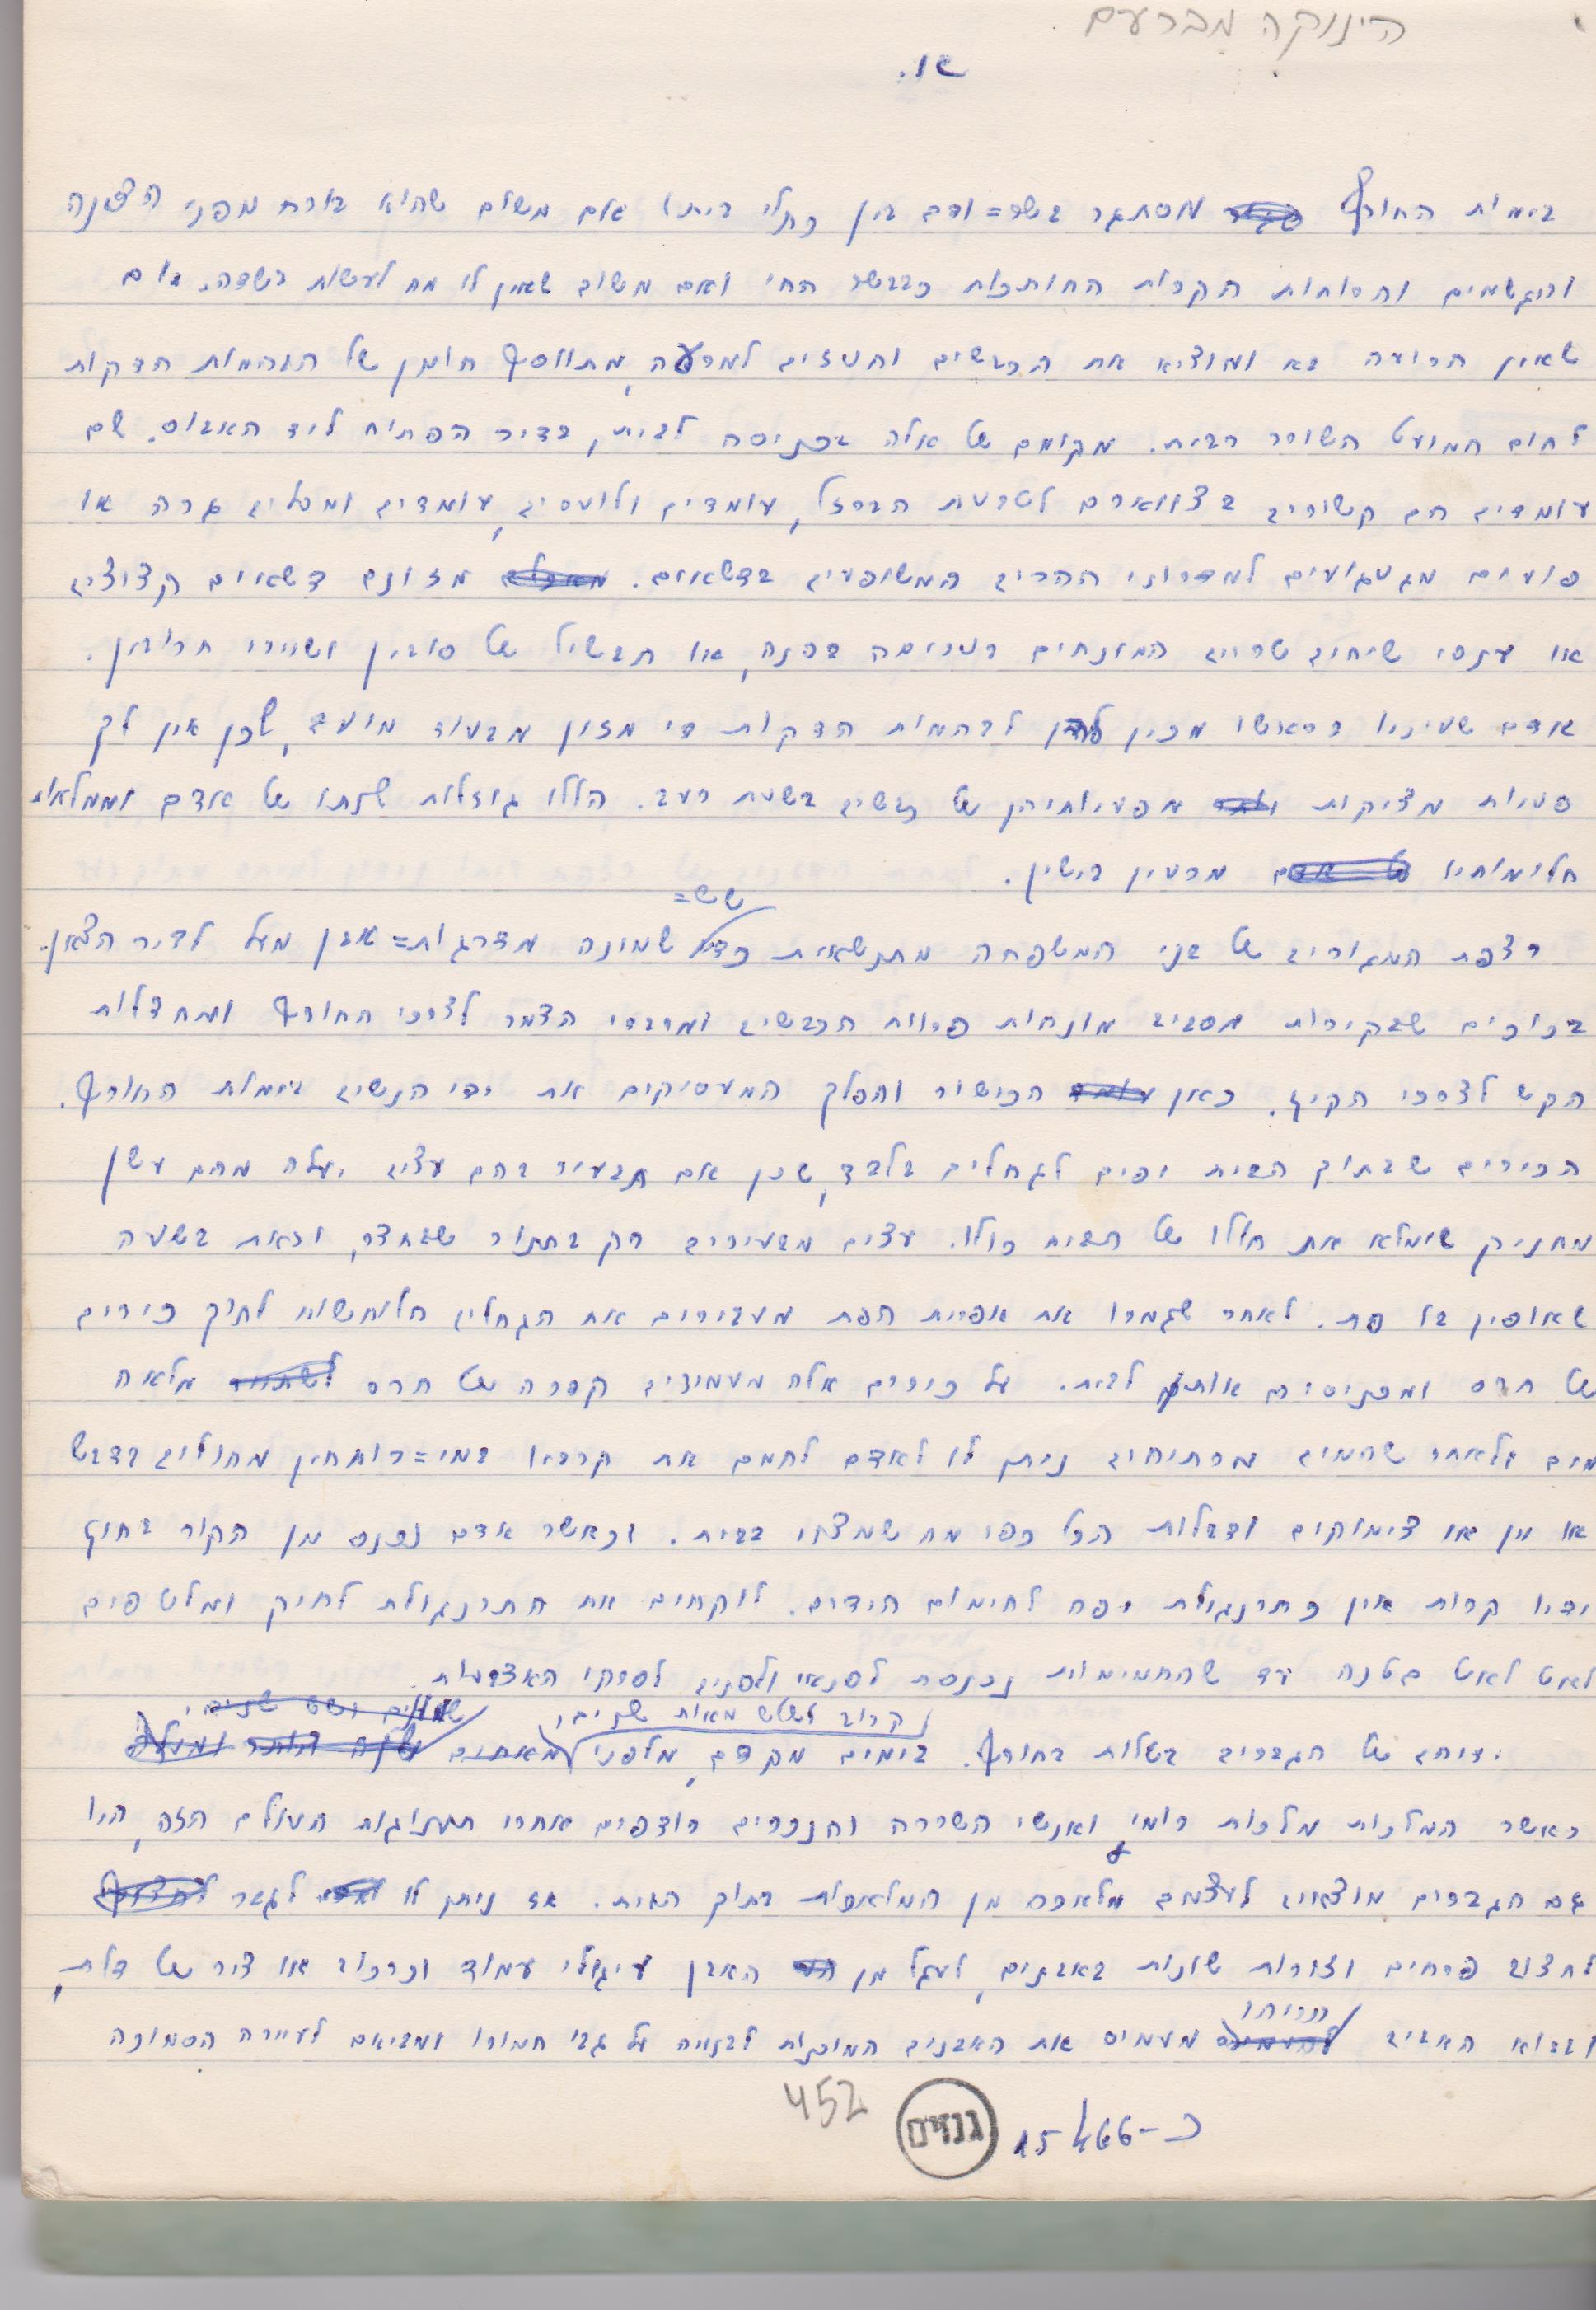 הינוקה מברעם
שו.
בימות החורף מסתגר בשר=ודם בין כתלי ביתו גם משום שהוא בורח מפני הצינה
והגשמים והרוחות הקרות החותכות כבבשר החי וגם משום שאין לו מה לעשות בשדה. גם
שאין הרועה בא ומוציא את הכבשים והעזים למרעה, מתווסף חומן של הבהמות הדקות
לחום המועט השורר בבית. מקומם של אלה בכניסה לבית, בדיר הפתוח ליד האבוס. שם
עומדים הם קשורים בצווארם לטבעת הברזל, עומדים ולועסים, עומדים ומעלים גרה או
פועים מגעגועים למדרוני ההרים המשופעים בדשאים. מזונם דשאים קצוצים
או ענפי שיחים טריים המונחים בערימה בפנה, או תבשיל של סובין ושיירי חרובין.
אדם שעיניו בראשו מכין לבהמות הדקות די מזון מבעוד מועד, שכן אין לך
פעיות מציקות מפעיותיהן של כבשים בשעת רעב. הללו גוזלות שנתו של אדם וממלאות
חלומותיו מרעין בישין.
רצפת המגורים של בני המשפחה מתנשאת כדי שש= שמונה מדרגות=אבן מעל לדיר הצאן.
בכוכים שבקירות מסביב מונחות פרוות הכבשים ומרבדי הצמר לצרכי החורף ומחצלות
הקש לצרכי הקיץ. כאן הכישור והפלך המעסיקים את ידי הנשים בימות החורף.
הכירים שבתוך הבית יפים לגחלים בלבד, שכן אם תבעיר בהם עצים יעלה מהם עשן
מחניק שימלא את חללו של הבית כולו. עצים מבעירים רק בתנור שבחצר, וזאת בשעה
שאופין בו פת. לאחר שגמרו את אפיית הפת מעבירים את הגחלים הלוחשות לתוך כירים
של חרס ומכניסים אותן לבית. על כירים אלה מעמידים קדרה של חרס מלאה
מים ולאחר שהמים מרתיחים ניתן לו לאדם לחמם את קרביו במי=רותחין מהולים בדבש
או יין או צימוקים ודבלות הכל כפי מה שמצוי בבית. וכאשר אדם נכנס מן הקור בחוץ
וידיו קרות אין כתרנגולת יפה לחימום הידים. לוקחים את התרנגולת לחיק ומלטפים
לאט לאט בטנה עד שהחמימות נכנסת לפנאי ולפנים לפרקי האצבעות.
ידיהם של הגברים בטלות בחורף. בימים מקדם, מלפני קרוב לשלש מאות שנים,
כאשר המלכות מלכות רומי ואנשי השררה והנכבדים רודפים אחרי תענוגות העולם הזה, היו
גם הגברים מוצאים לעצמם מלאכה מן המלאכות בתוך הבית. אז ניתן לו לגבר
לחצוב פרחים וצורות שונות באבנים, לעגל מן האבן עיגולי עמוד וכרכוב או ציר של דלת,
ובבוא האביב מעמיס את האבנים המוכנות לבנייה על גבי חמורו ומביאם לעיירה הסמוכה
452
גנזים
כ-15466